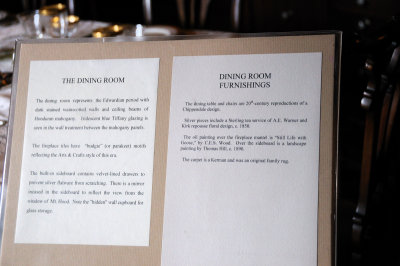 THE DINING ROOM
The dining room represents the Edwardian period with
dark stained wainscotted walls and ceiling beams of
Honduran mahogany. Iridescent blue Tiffany glazing is
seen in the wall treatment between the mahogany panels.
The fireplace tiles have "budgie" (or parakeet) motifs
reflecting the Arts & Crafts style of this era.
The built-in sideboard contains velvet-lined drawers to
prevent silver flatware from scratching. There is a mirror
instead in the sideboard to reflect the view from the
window of Mt. Hood. Note the "hidden" wall cupboard for
glass storage.
DINING ROOM
FURNISHINGS
The dining table and chairs are 20th century reproductions of a
Chippendale design.
Silver pieces include a Sterling tea service of A.E. Warner and
Kirk repousse floral design, c. 1850.
The oil painting over the fireplace mantel is "Still Life with
Geese," by C.E.S. Wood. Over the sideboard is a landscape
painting by Thomas Hill, c. 1890.
The carpet is a Kerman and was an original family rug.